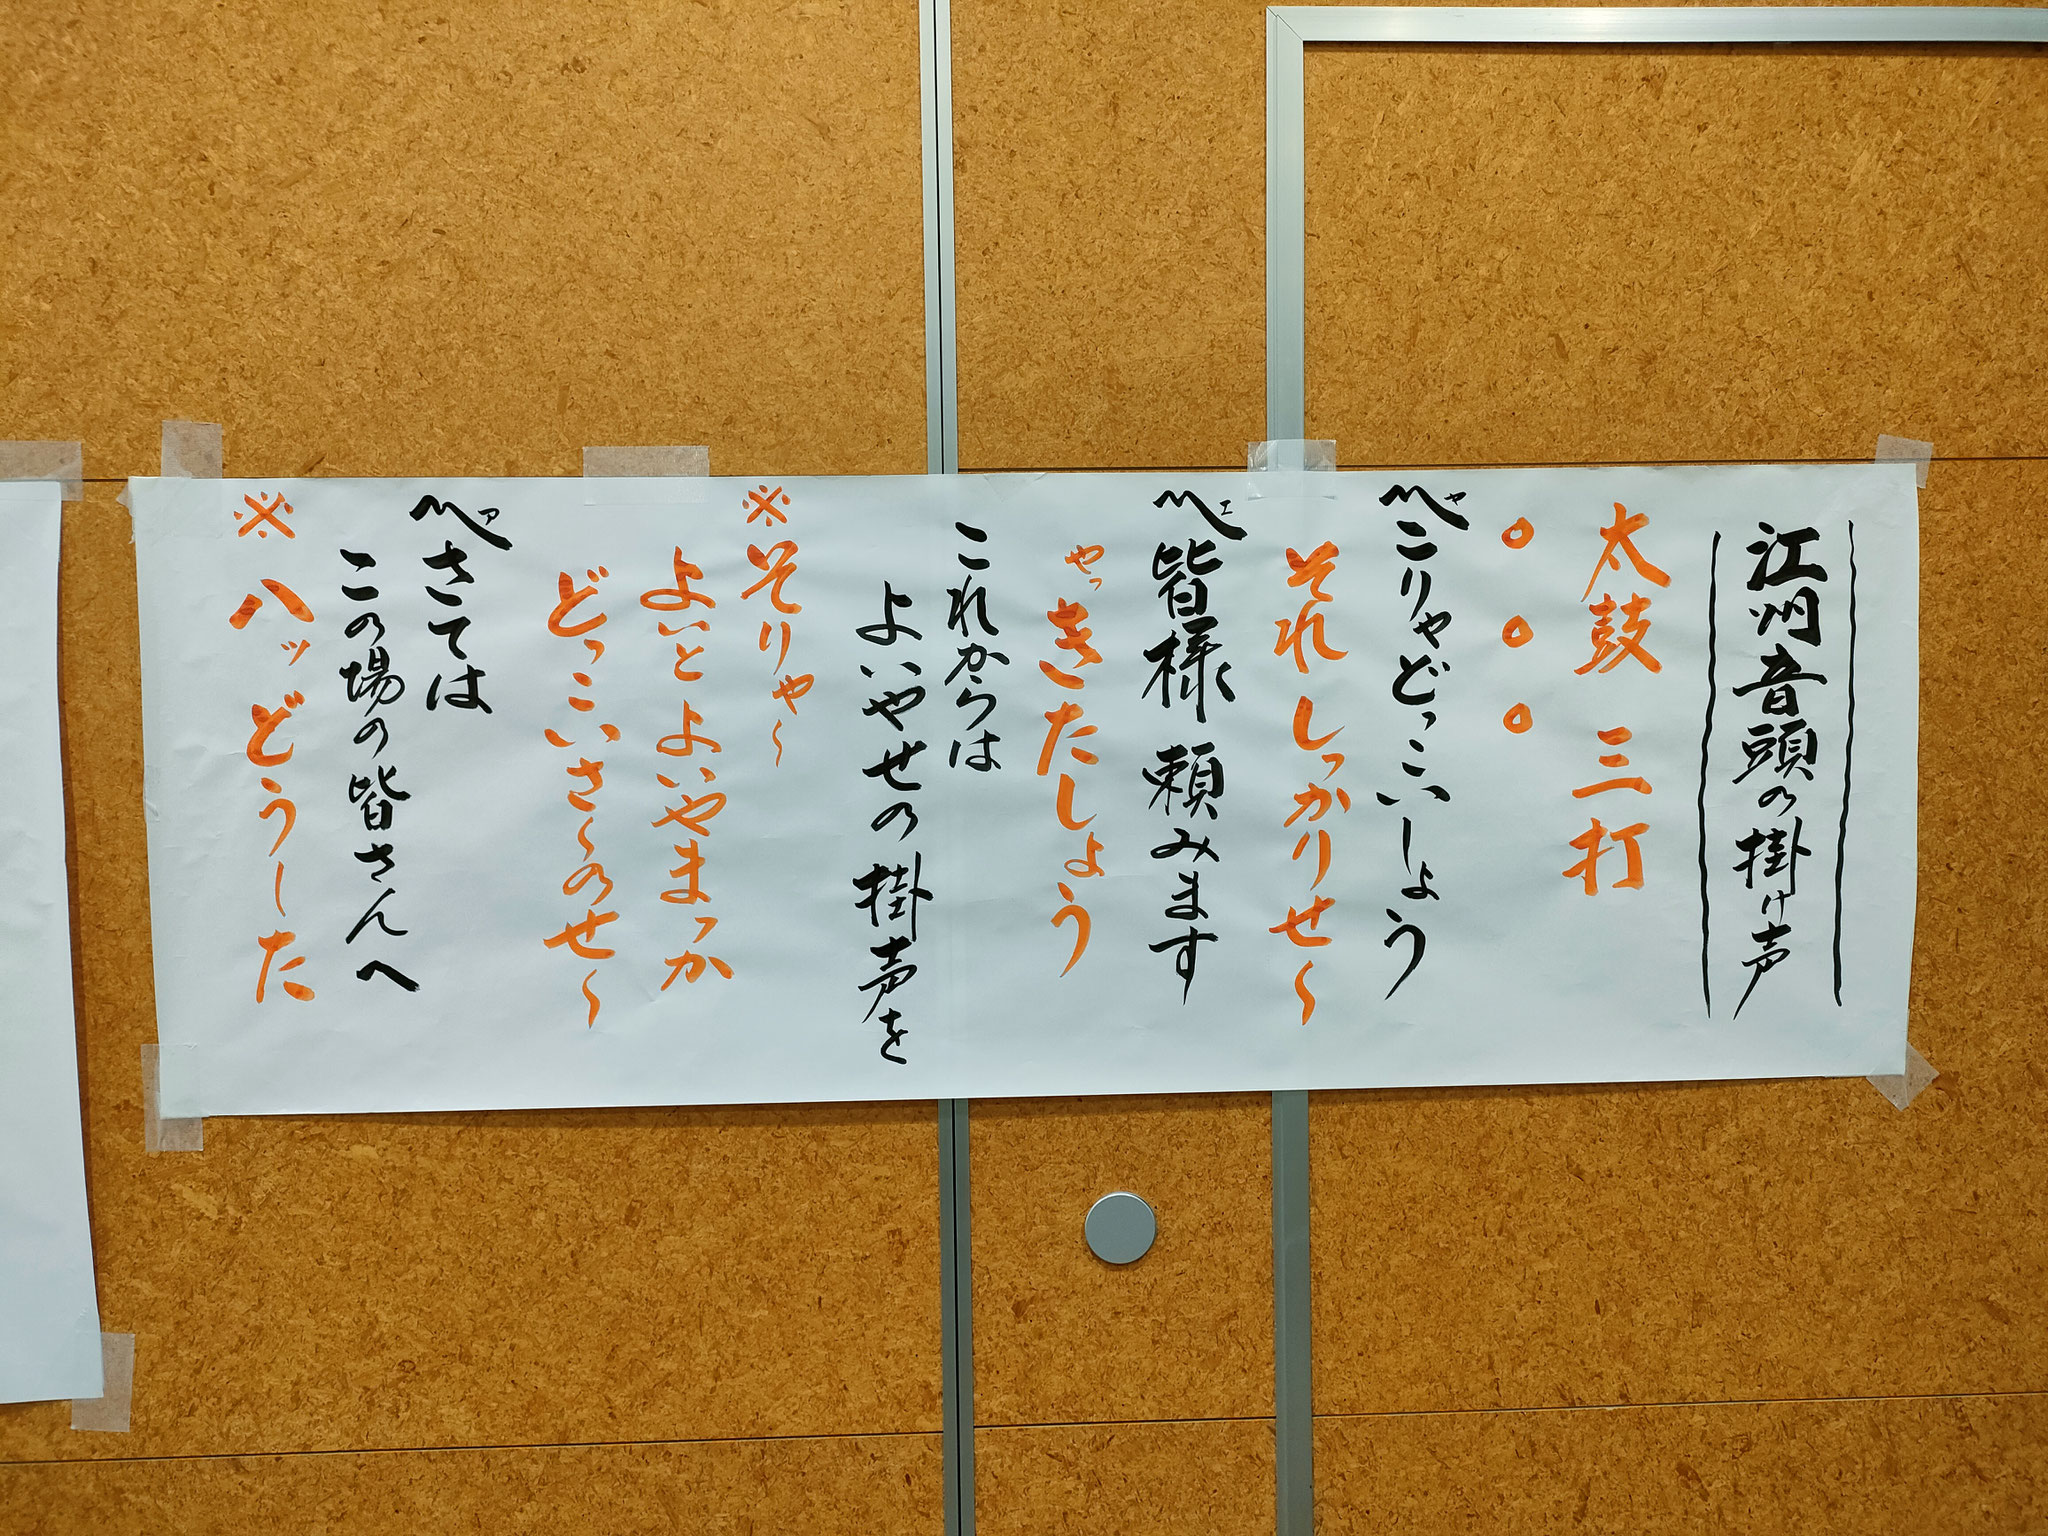 江州音頭の掛け声
太鼓 三打
○ ○ ○
〽ヤこりゃどっこいしょう
それしっかりせ〜
〽エ皆様 頼みます
やっきたしょう
これからは
よいやせの掛声を
※そりゃ〜
よいとよいやまっか
どっこいさ〜のせ〜
〽アさては
この場の皆さんへ
※ハッどうーした